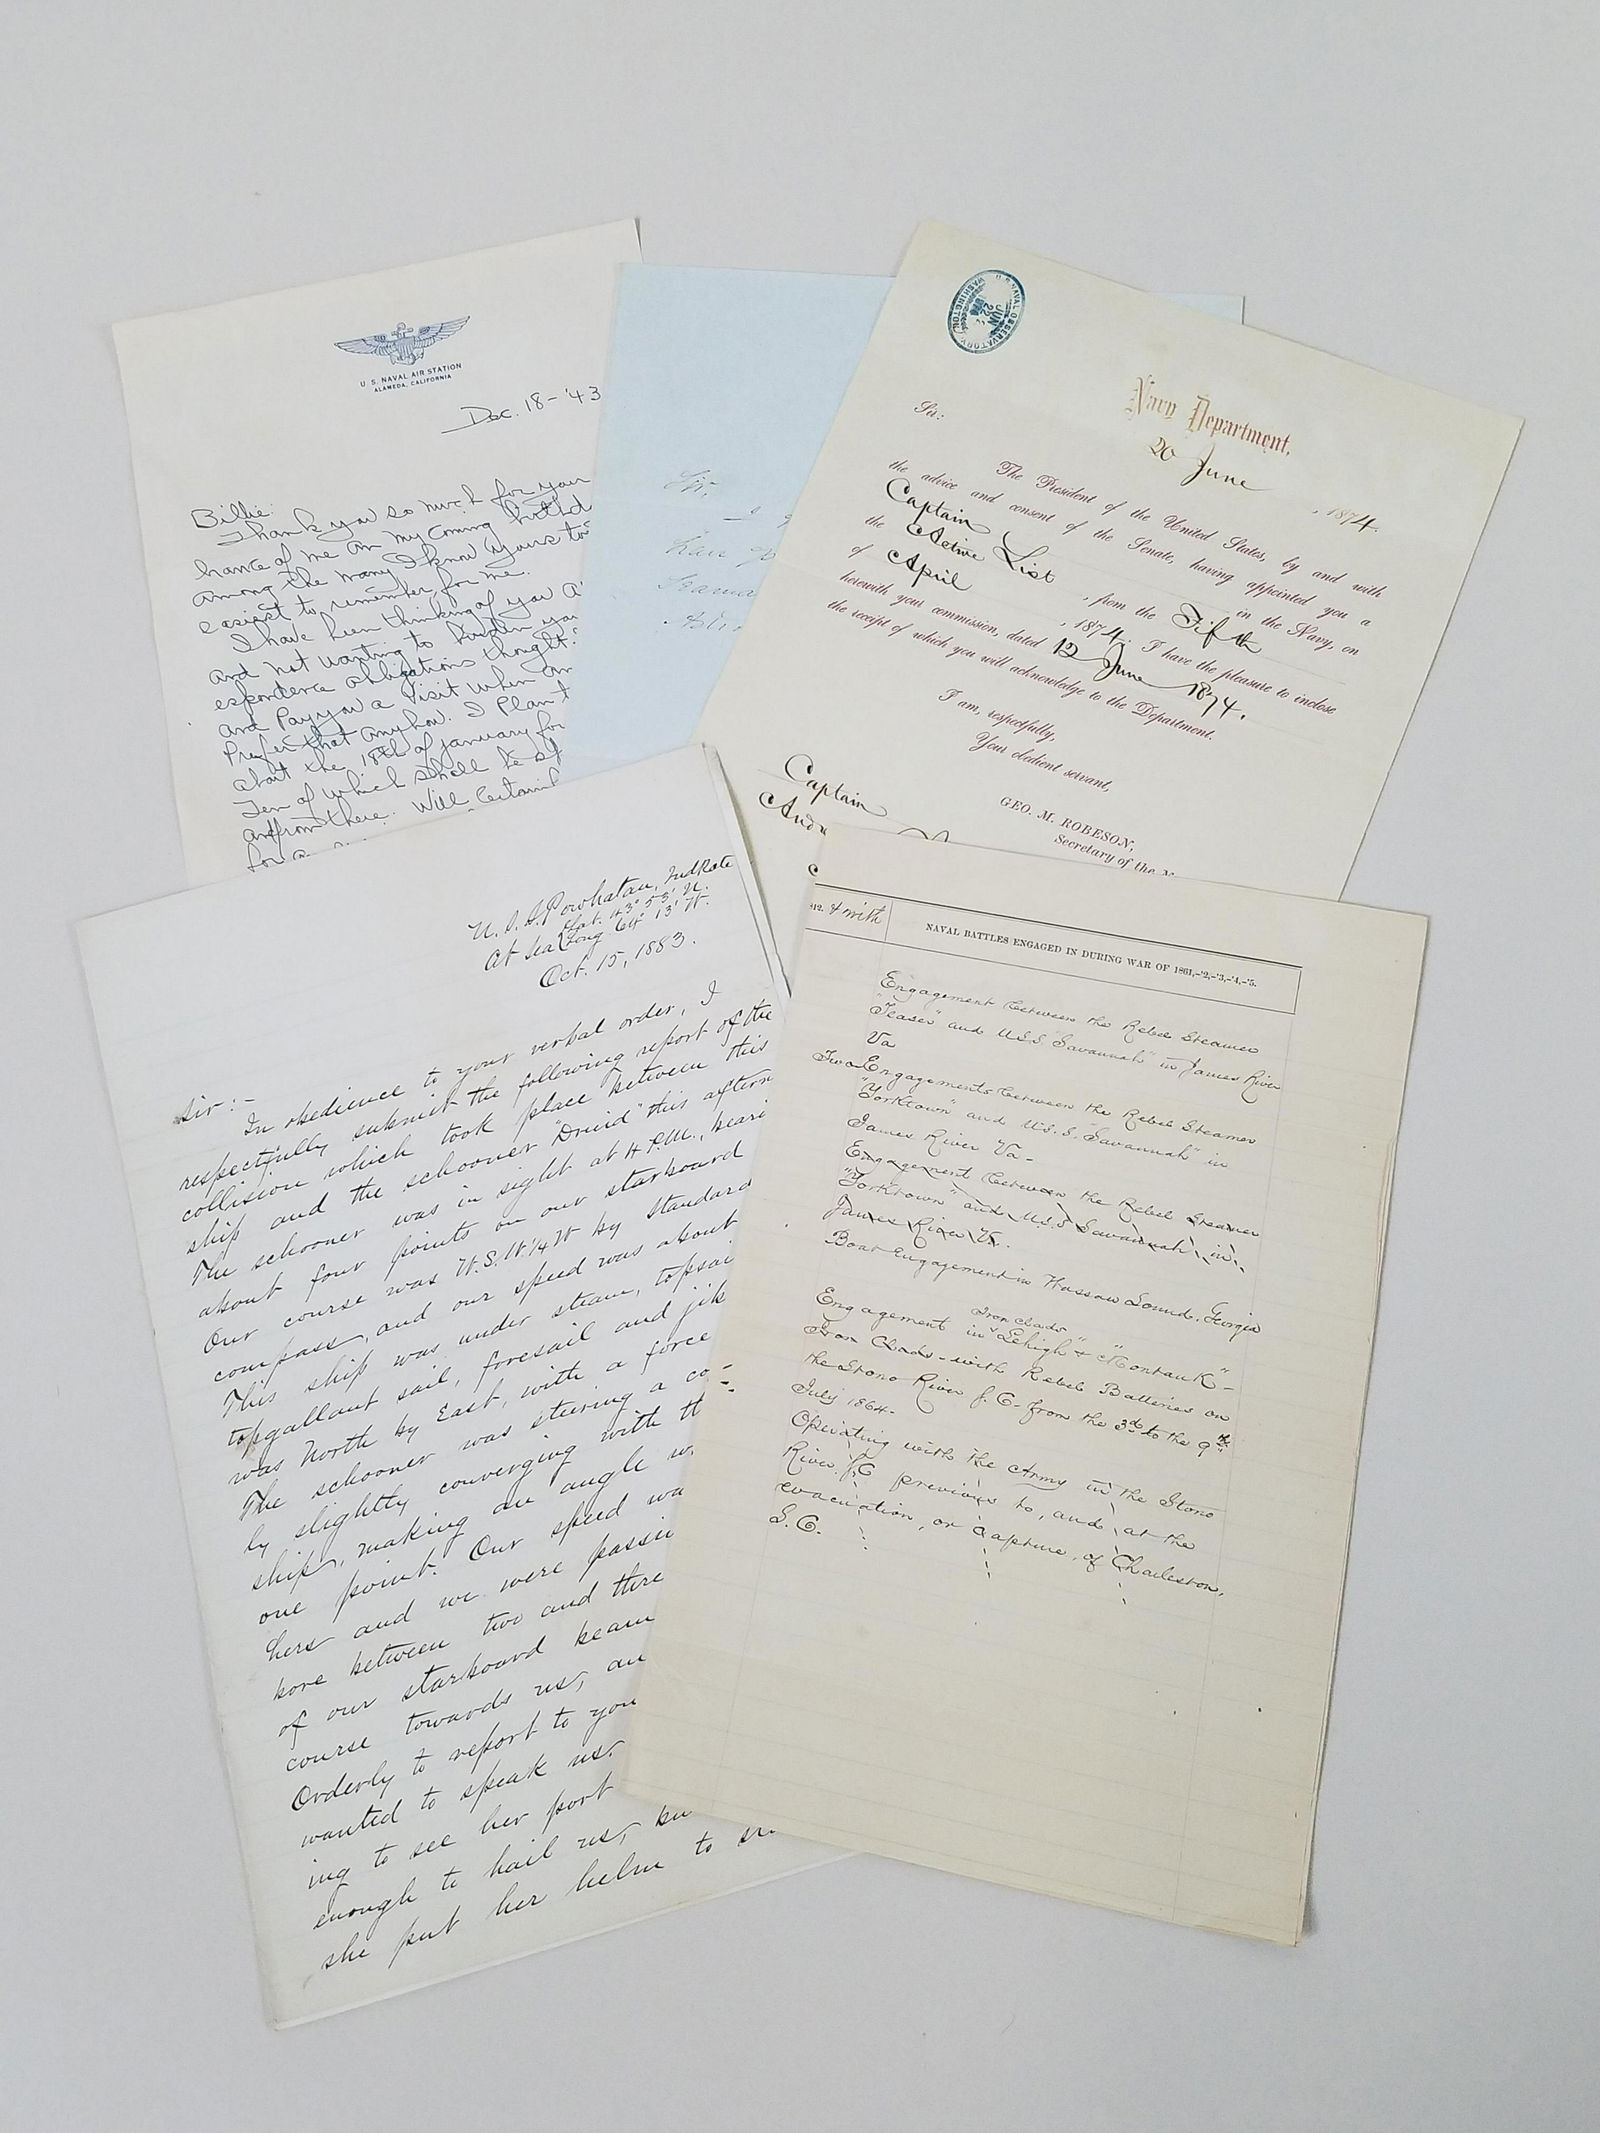 U. S. NAVAL AIR STATION
ALAMEDA, CALIFORNIA
Dec. 18-'43
Billie:
Thank you so much for your
hance of me on my coming birthd
among the many I know yours to
easiest to remember for me.
I have been thinking of you a
and not wanting to burden you
espondence obligations thought
and Pay you a visit when on
Prefer that anyhow. I Plan t
about the 18th of january for
Ten of which shall be at
and from there. Will certainl
for a
Sir,
I
U.S. NAVAL OBSERVATORY
WASHINGTON
JUN
Navy Department,
20 June, 1874.
Sir:
The President of the United States, by and with
the advice and consent of the Senate, having appointed you a
Captain in the Navy, on
the Active List, from the Fifth
of April, 1874. I have the pleasure to inclose
herewith your commission, dated 12 June 1874,
the receipt of which you will acknowledge to the Department.
I am, respectfully,
Your obedient servant,
GEO. M. ROBESON,
Secretary of the N
Captain
Andr
U.S.S. Powhatan, 2nd Rate
At Sea { Lat. 43° 53' N.
Long 64° 13' W.
Oct. 15, 1883.
Sir:-
In obedience to your verbal order, I
respectfully submit the following report of the
collision which took place between this
ship and the schooner "Druid" this aftern
The schooner was in sight at 4 P.M., beari
about four points on our starboard
Our course was W.S.W.¼W by Standard
compass, and our speed was about
This ship was under steam, topsai
topgallant sail, foresail and jib
was North by East, with a force
The schooner was steering a co
ly slightly converging with th
ship, making an angle w
one point. Our speed wa
hers and we were passin
bore between two and three
of our starboard beam
course towards us, an
Orderly to report to you
wanted to speak us.
ing to see her port
enough to hail us, bu
she put her helm to
'12. & with
NAVAL BATTLES ENGAGED IN DURING WAR OF 1861,-'2,-'3,-'4,-'5.
Engagement between the Rebel Steamer
"Teaser" and U.S.S. "Savannah" in James River
Va
Two Engagements between the Rebel Steamer
"Yorktown" and U.S.S. "Savannah" in
James River Va-
Engagement between the Rebel Steamer
"Yorktown" and U.S.S Savannah in
James River Va.
Boat Engagement in Wassaw Sound, Georgia
Iron clads
Engagement in "Lehigh" & "Montauk"-
Iron Clads-with Rebel Batteries on
the Stono River S.C- from the 3d to the 9th
July 1864-
Operating with the Army in the Stono
River, S.C previous to, and at the
evacuation, or Capture, of Charleston,
S.C.